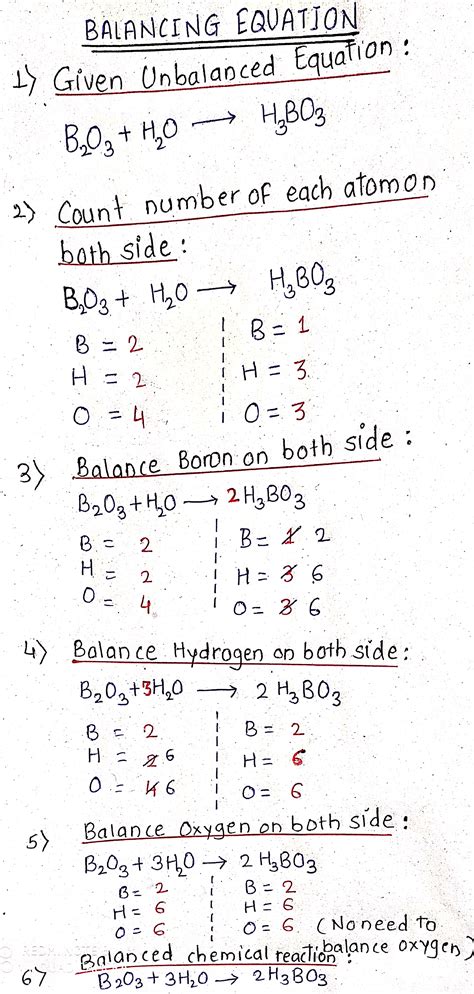 BALANCING EQUATION
1) Given Unbalanced Equation:
B₂O₃ + H₂O ⟶ H₃BO₃
2) Count number of each atomon
both side:
B₂O₃ + H₂O ⟶ H₃BO₃
B = 2 | B = 1
H = 2 | H = 3
O = 4 | O = 3
3) Balance Boron on both side:
B₂O₃ + H₂O ⟶ 2H₃BO₃
B = 2 | B = 1 2
H = 2 | H = 3 6
O = 4 | O = 3 6
4) Balance Hydrogen on both side:
B₂O₃ + 3H₂O ⟶ 2H₃BO₃
B = 2 | B = 2
H = 2 6 | H = 6
O = 4 6 | O = 6
5) Balance Oxygen on both side:
B₂O₃ + 3H₂O → 2H₃BO₃
B = 2 | B = 2
H = 6 | H = 6
O = 6 | O = 6 (No need to
balance oxygen)
6) Balanced chemical reaction:
B₂O₃ + 3H₂O → 2H₃BO₃